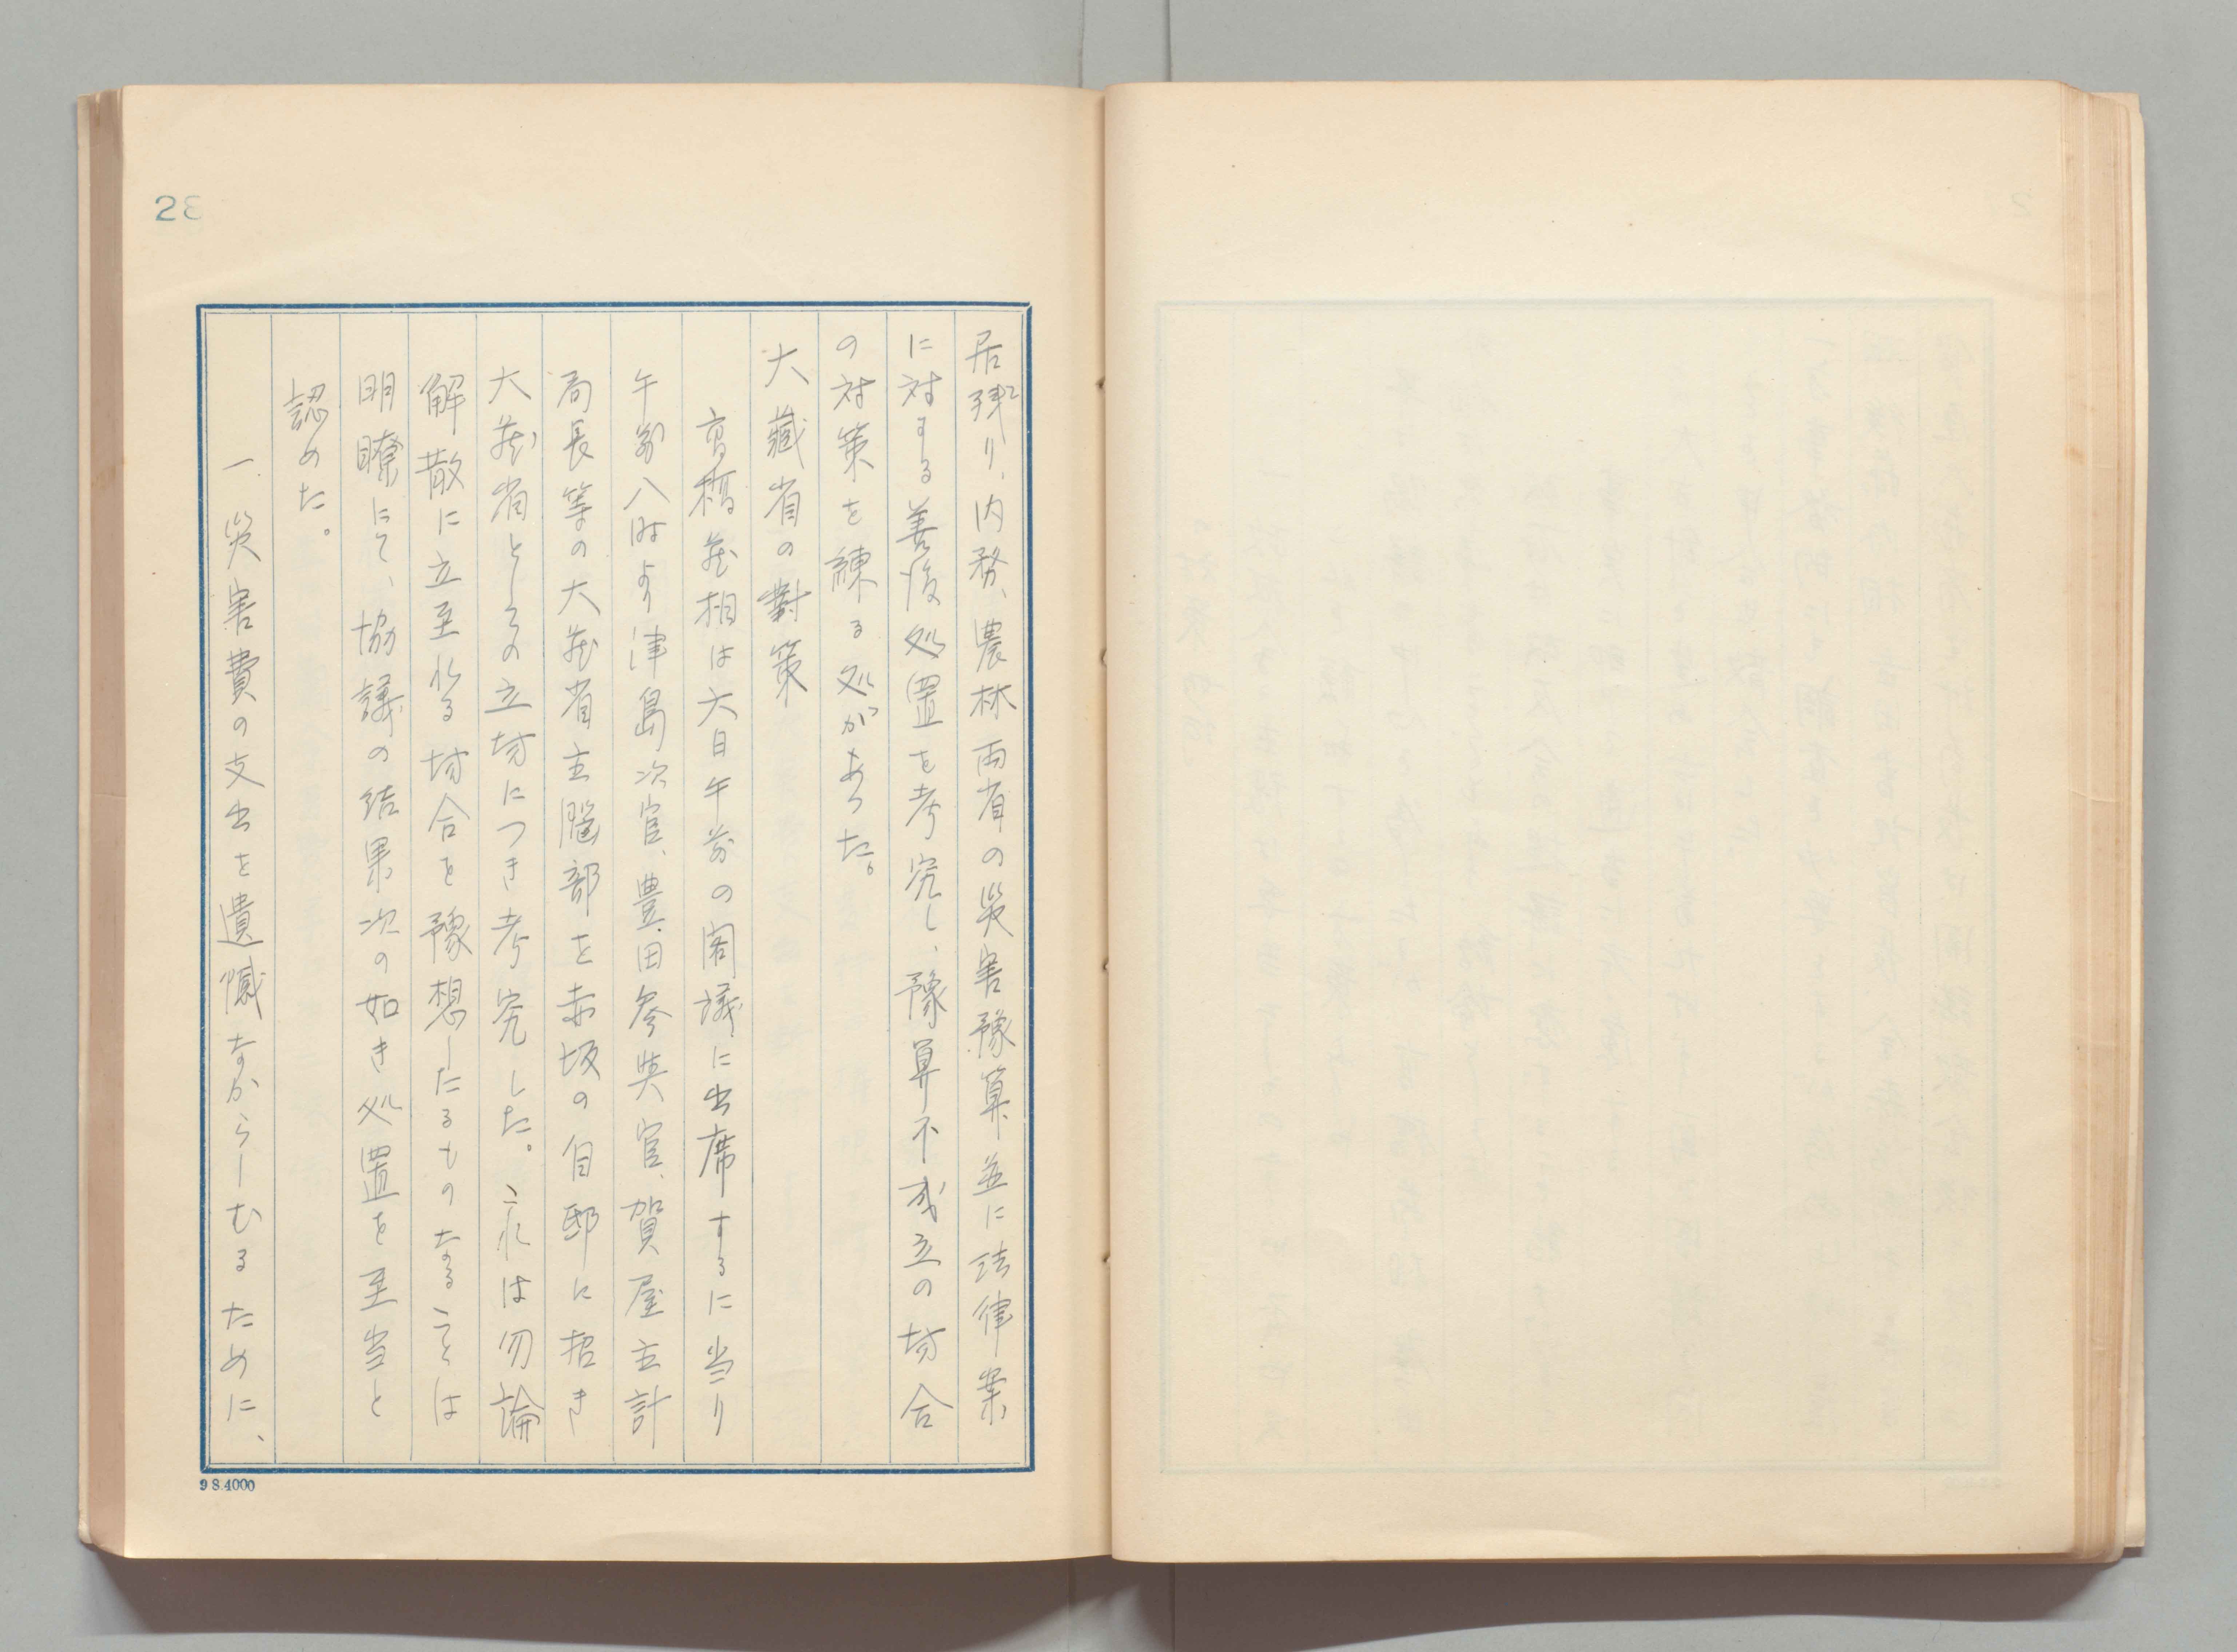 居残り、内務、農林両省の災害豫算並に法律案
に対する善後処置を考究し、豫算不成立の場合
の対策を練る処があった。
大藏省の對策
高橋蔵相は六日午前の閣議に出席するに当り
午前八時より津島次官、豊田参与官、賀屋主計
局長等の大蔵省主脳部を赤坂の自邸に招き
大蔵省としての立場につき考究した。これは勿論
解散に立至れる場合を豫想したるものなることは
明瞭にて、協議の結果次の如き処置を至当と
認めた。
一、災害費の支出を遺憾なからしむるために、
28
9 8.4000